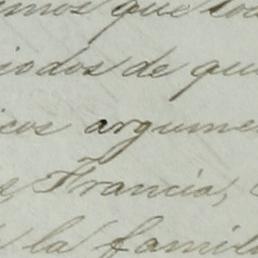 que
iodos de que
argume
Francia,
la famil